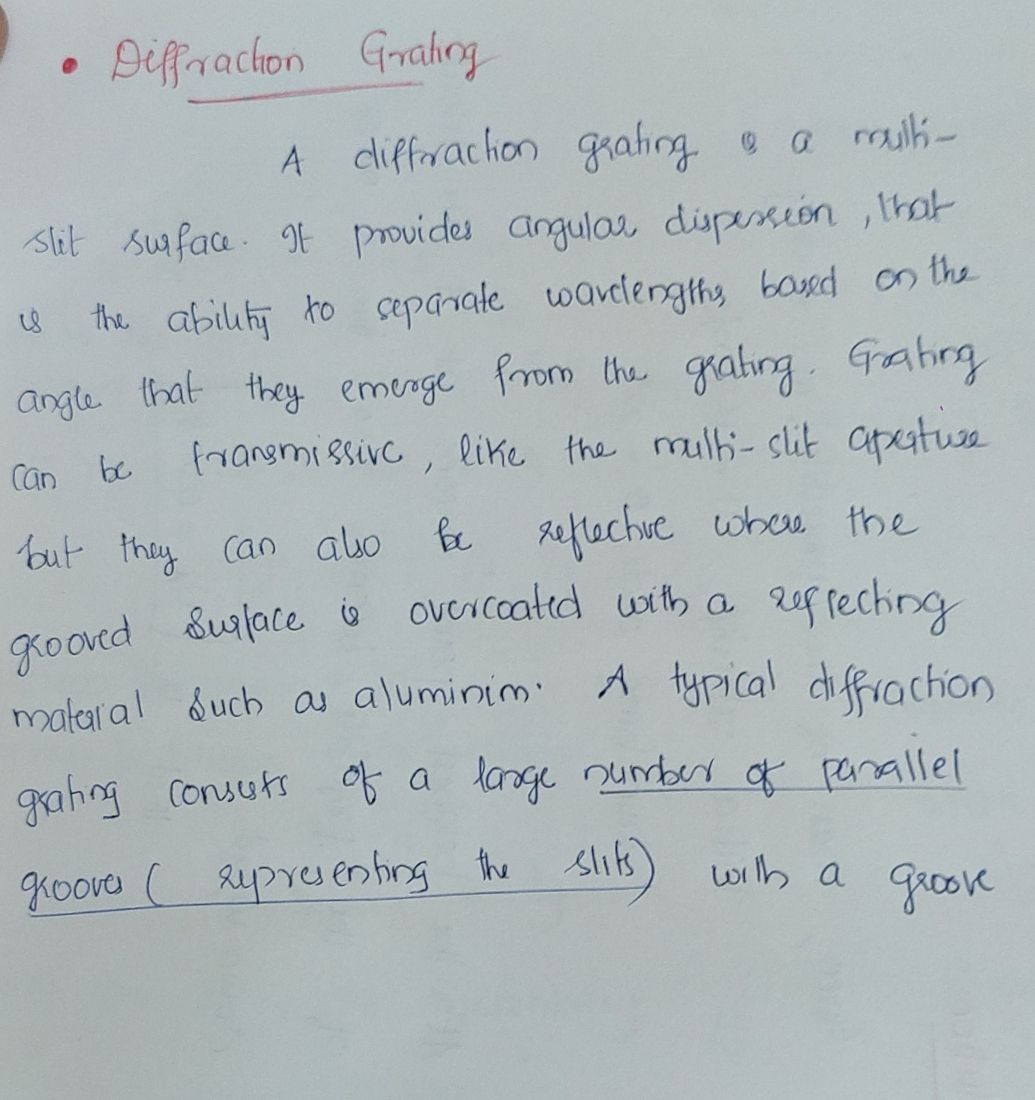 • Diffraction Grating
A diffraction grating is a multi-
slit surface. It provides angular dispersion, that
is the ability to separate wavelengths, based on the
angle that they emerge from the grating. Grating
can be transmissive, like the multi-slit aperture
but they can also be reflective where the
grooved surface is overcoated with a reflecting
material such as aluminim. A typical diffraction
grating consists of a large number of parallel
grooves ( representing the slits) with a groove